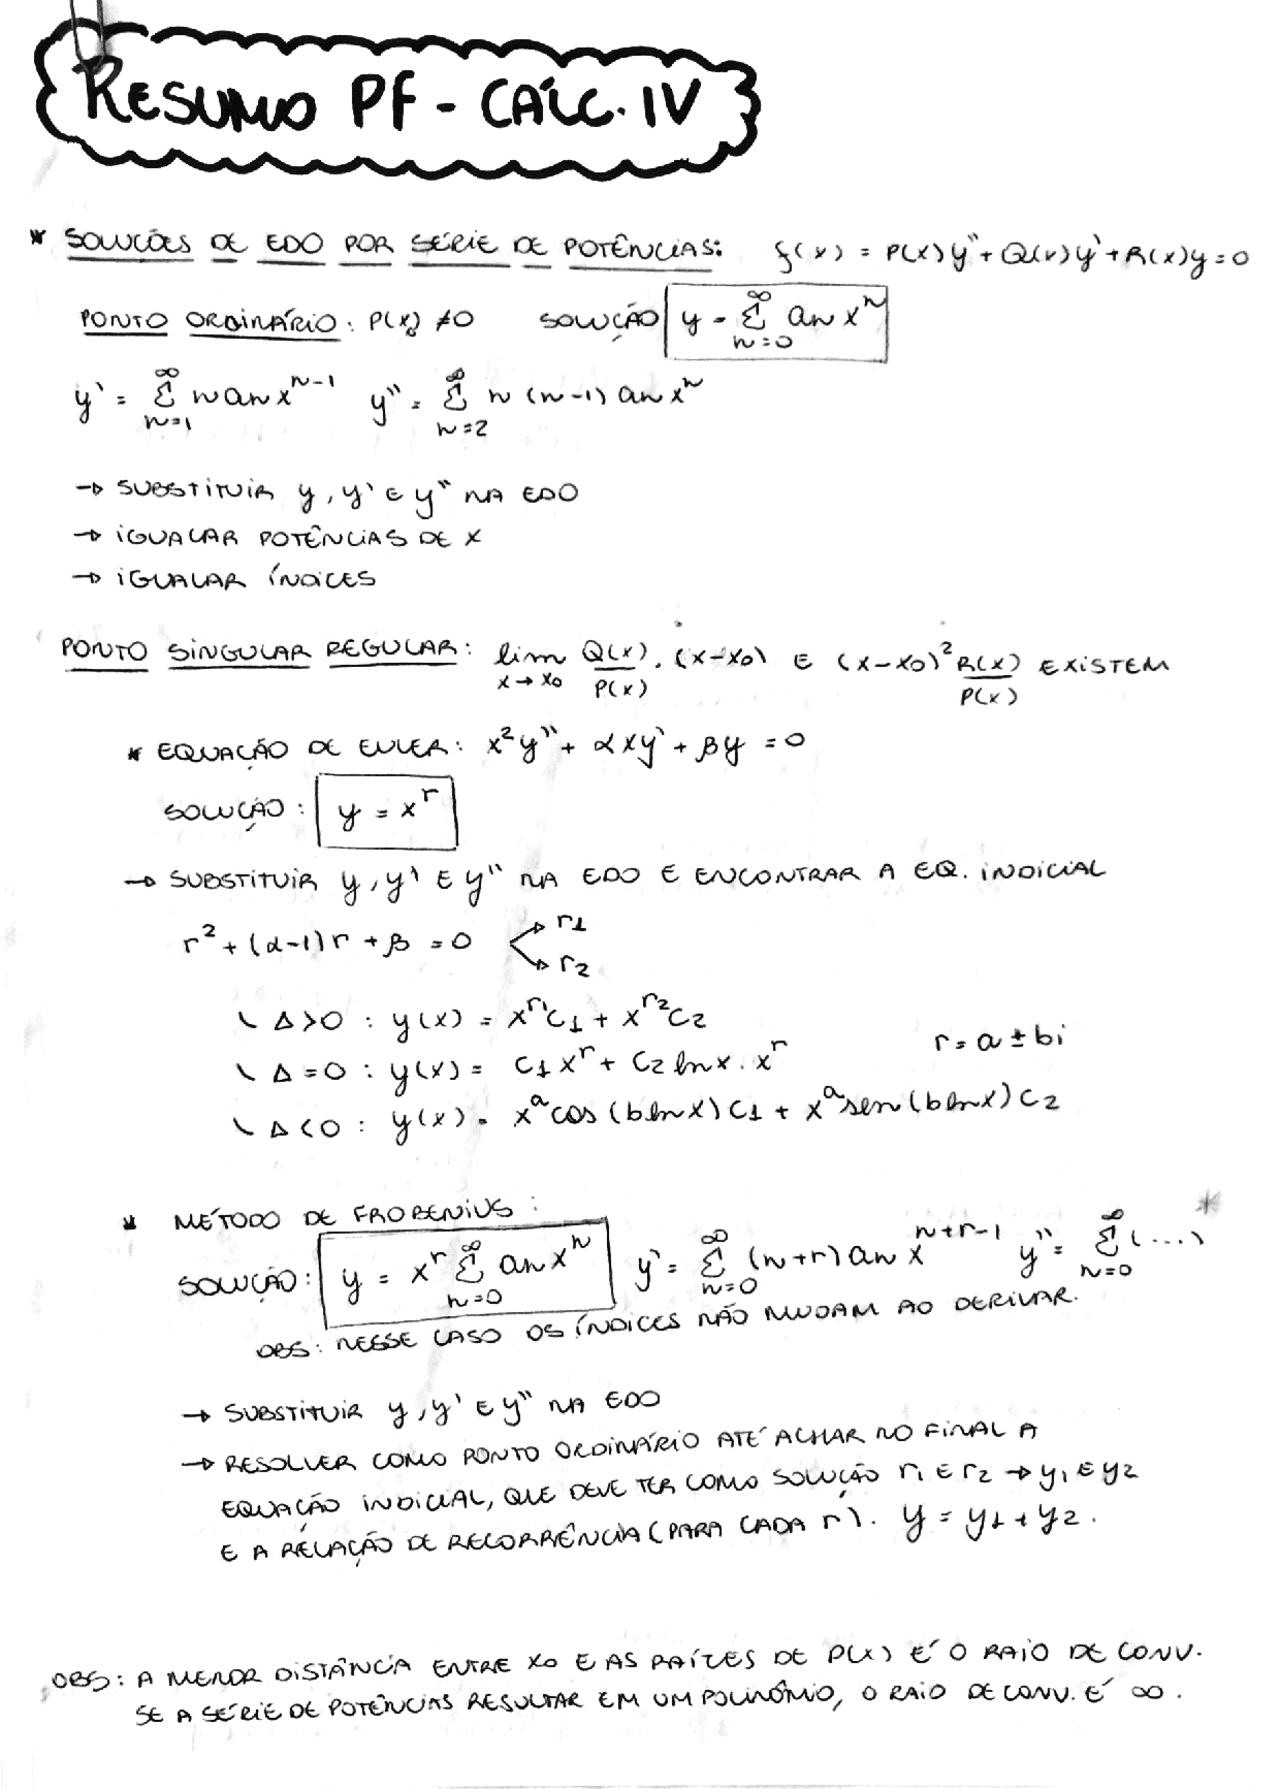 RESUMO PF - CÁLC. IV
* SOLUÇÕES DE EDO POR SÉRIE DE POTÊNCIAS: f(x) = P(x)y'' + Q(x)y' + R(x)y = 0
PONTO ORDINÁRIO: P(x₀) ≠ 0 SOLUÇÃO y = ∑_{n=0}^{∞} an x^n
y' = ∑_{n=1}^{∞} n an x^{n-1} y'' = ∑_{n=2}^{∞} n (n-1) an x^n
→ SUBSTITUIR y, y' E y'' NA EDO
→ IGUALAR POTÊNCIAS DE X
→ IGUALAR ÍNDICES
PONTO SINGULAR REGULAR: lim_{x→x₀} Q(x)/P(x) . (x-x₀) E (x-x₀)² R(x)/P(x) EXISTEM
* EQUAÇÃO DE EULER: x²y'' + αxy' + βy = 0
SOLUÇÃO: y = x^r
→ SUBSTITUIR y, y' E y'' NA EDO E ENCONTRAR A EQ. INDICIAL
r² + (α-1)r + β = 0 → r1 → r2
\ Δ>0 : y(x) = x^{r1}C1 + x^{r2}C2
r = a ± bi
\ Δ=0 : y(x) = C1 x^r + C2 ln x . x^r
\ Δ<0 : y(x) = x^a cos (b ln x) C1 + x^a sen (b ln x) C2
* MÉTODO DE FROBENIUS: *
SOLUÇÃO: y = x^r ∑_{n=0}^{∞} an x^n y' = ∑_{n=0}^{∞} (n+r) an x^{n+r-1} y'' = ∑_{n=0}^{∞} (...)
OBS: NESSE CASO OS ÍNDICES NÃO MUDAM AO DERIVAR.
→ SUBSTITUIR y, y' E y'' NA EDO
→ RESOLVER COMO PONTO ORDINÁRIO ATÉ ACHAR NO FINAL A
EQUAÇÃO INDICIAL, QUE DEVE TER COMO SOLUÇÃO r1 E r2 → y1 E y2
E A RELAÇÃO DE RECORRÊNCIA (PARA CADA r). y = y1 + y2.
OBS: A MENOR DISTÂNCIA ENTRE X0 E AS RAÍZES DE P(x) É O RAIO DE CONV.
SE A SÉRIE DE POTÊNCIAS RESULTAR EM UM POLINÔMIO, O RAIO DE CONV. É ∞.